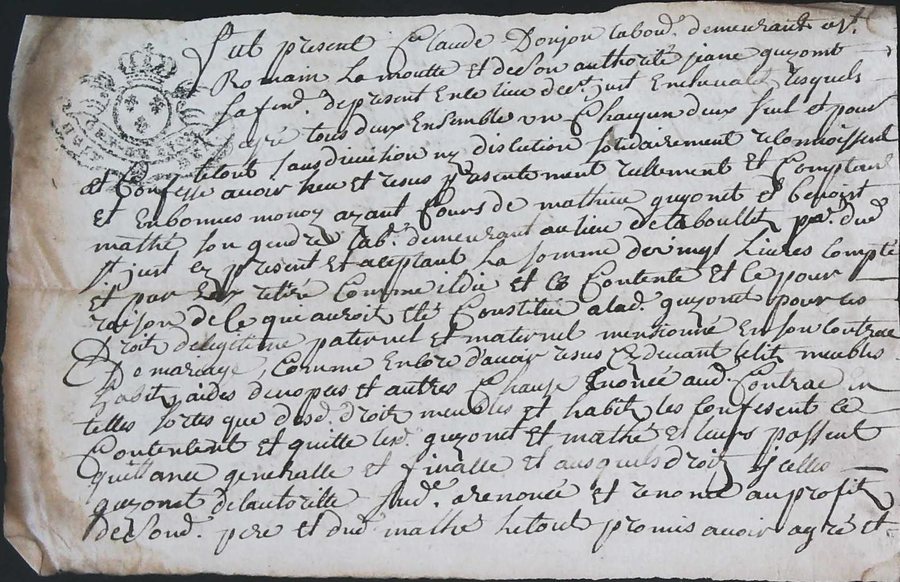 Fut present Claude Donjon labou.r demeurant a S.t
Romain La moutte et de son authorité jane guyonet
Sa fem.e de present en ce lieu de S.t just en chevalet lesquels
de gré tous deux Ensemble un Chaqun deux seul et pour
le tout sans division ny discution solidairement reconnoissent
et Confesse avoir heu et resus presentement reellement et Comptant
et En bonnes monoy ayant Cours de mathieu guyonet et benoist
mathé son gendre lab.r demeurant au lieu de la boullet par. dud
S.t just cy present et aceptant La somme de vingt Livres compté
et par Eux retiré Comme il die et Contente et ce pour
raison de Ce que auroit eté Constitué a lad. guyonet pour ses
Droit de legitime paternel et maternel mentionné En son Contrac
De mariage, Comme Encore d'avoir resus cy devant lelit meubles
habitz aides de nopces et autres Chause Enoncé aud. Contrac En
telles sortes que desd. droit meubles et habitz les Confesent ce
Contentent et quitte lesd. guyonet et mathé et leurs passent
quittance generalle et finalle et ausquels droit ycelle
guyonet de l'autorité sud.e a renoncé et renonce au profit
de sond. pere et dud. mathé
 promis avoir agré et